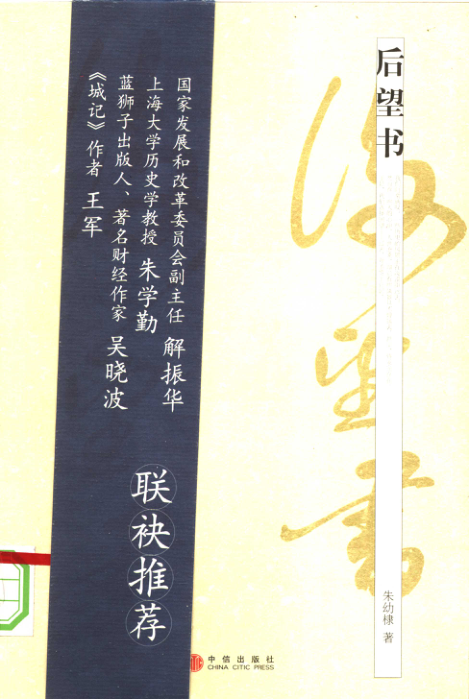 后望书
后望书
朱幼棣 著
国家发展和改革委员会副主任 解振华
上海大学历史学教授 朱学勤
蓝狮子出版人、著名财经作家 吴晓波
《城记》作者 王军
联袂推荐
中信出版社
CHINA CITIC PRESS